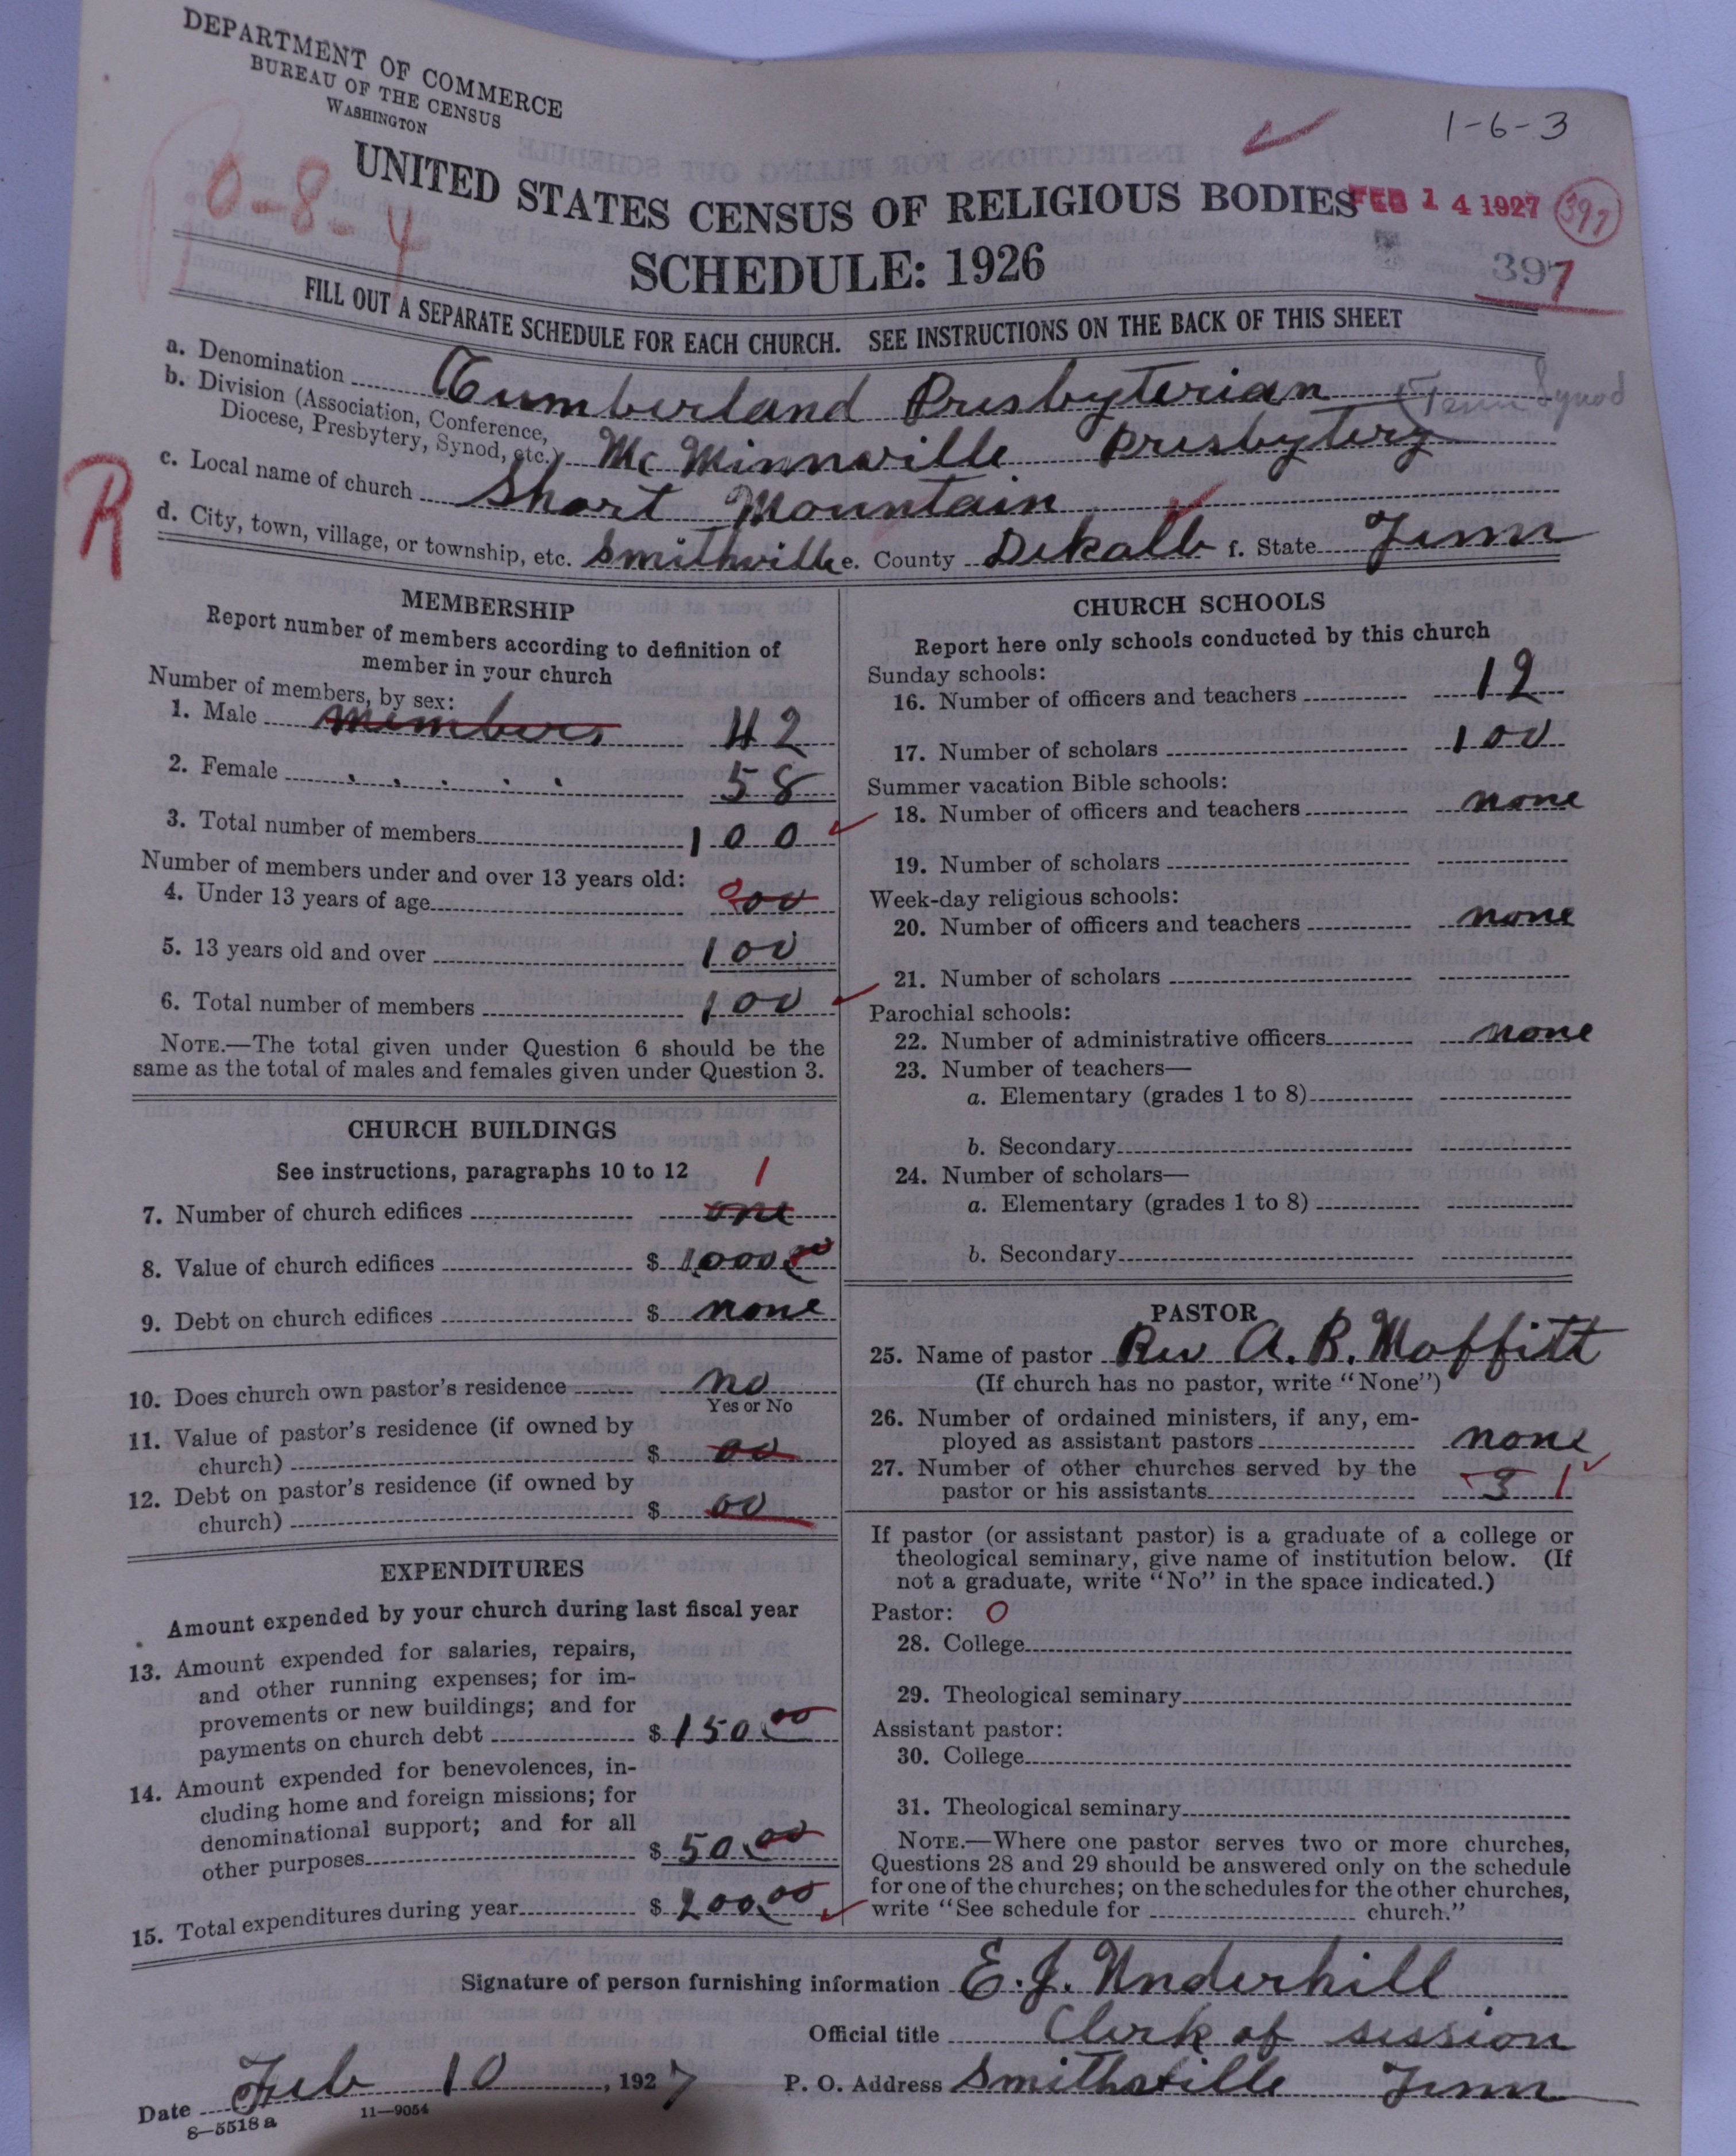 DEPARTMENT OF COMMERCE
BUREAU OF THE CENSUS
WASHINGTON
1-6-3
0-8-4
UNITED STATES CENSUS OF RELIGIOUS BODIES
FEB 14 1927
397
SCHEDULE: 1926
397
FILL OUT A SEPARATE SCHEDULE FOR EACH CHURCH. SEE INSTRUCTIONS ON THE BACK OF THIS SHEET
a. Denomination Cumberland Presbyterian (Tenn Synod
b. Division (Association, Conference, Diocese, Presbytery, Synod, etc.) McMinnville Presbytery
c. Local name of church Short Mountain
R
d. City, town, village, or township, etc. Smithville e. County Dekalb f. State Tenn
MEMBERSHIP
Report number of members according to definition of
member in your church
Number of members, by sex:
1. Male members 42
2. Female " " " " " 58
3. Total number of members 100
Number of members under and over 13 years old:
4. Under 13 years of age 000
5. 13 years old and over 100
6. Total number of members 100
NOTE.—The total given under Question 6 should be the
same as the total of males and females given under Question 3.
CHURCH BUILDINGS
See instructions, paragraphs 10 to 12 1
7. Number of church edifices one
8. Value of church edifices $ 1000.00
9. Debt on church edifices $ none
10. Does church own pastor's residence no
Yes or No
11. Value of pastor's residence (if owned by
church) $ 00
12. Debt on pastor's residence (if owned by
church) $ 00
EXPENDITURES
Amount expended by your church during last fiscal year
13. Amount expended for salaries, repairs,
and other running expenses; for im-
provements or new buildings; and for
payments on church debt $ 150.00
14. Amount expended for benevolences, in-
cluding home and foreign missions; for
denominational support; and for all
other purposes $ 50.00
15. Total expenditures during year $ 200.00
CHURCH SCHOOLS
Report here only schools conducted by this church
Sunday schools:
16. Number of officers and teachers 12
17. Number of scholars 100
Summer vacation Bible schools:
18. Number of officers and teachers none
19. Number of scholars
Week-day religious schools:
20. Number of officers and teachers none
21. Number of scholars
Parochial schools:
22. Number of administrative officers none
23. Number of teachers—
a. Elementary (grades 1 to 8)
b. Secondary
24. Number of scholars—
a. Elementary (grades 1 to 8)
b. Secondary
PASTOR
25. Name of pastor Rev A. B. Moffitt
(If church has no pastor, write "None")
26. Number of ordained ministers, if any, em-
ployed as assistant pastors none
27. Number of other churches served by the
pastor or his assistants 3 1
If pastor (or assistant pastor) is a graduate of a college or
theological seminary, give name of institution below. (If
not a graduate, write "No" in the space indicated.)
Pastor: 0
28. College
29. Theological seminary
Assistant pastor:
30. College
31. Theological seminary
NOTE.—Where one pastor serves two or more churches,
Questions 28 and 29 should be answered only on the schedule
for one of the churches; on the schedules for the other churches,
write "See schedule for church."
Signature of person furnishing information E. J. Underhill
Official title Clerk of session
Date Feb 10, 1927 P. O. Address Smithville Tenn
8—5518a 11—9054